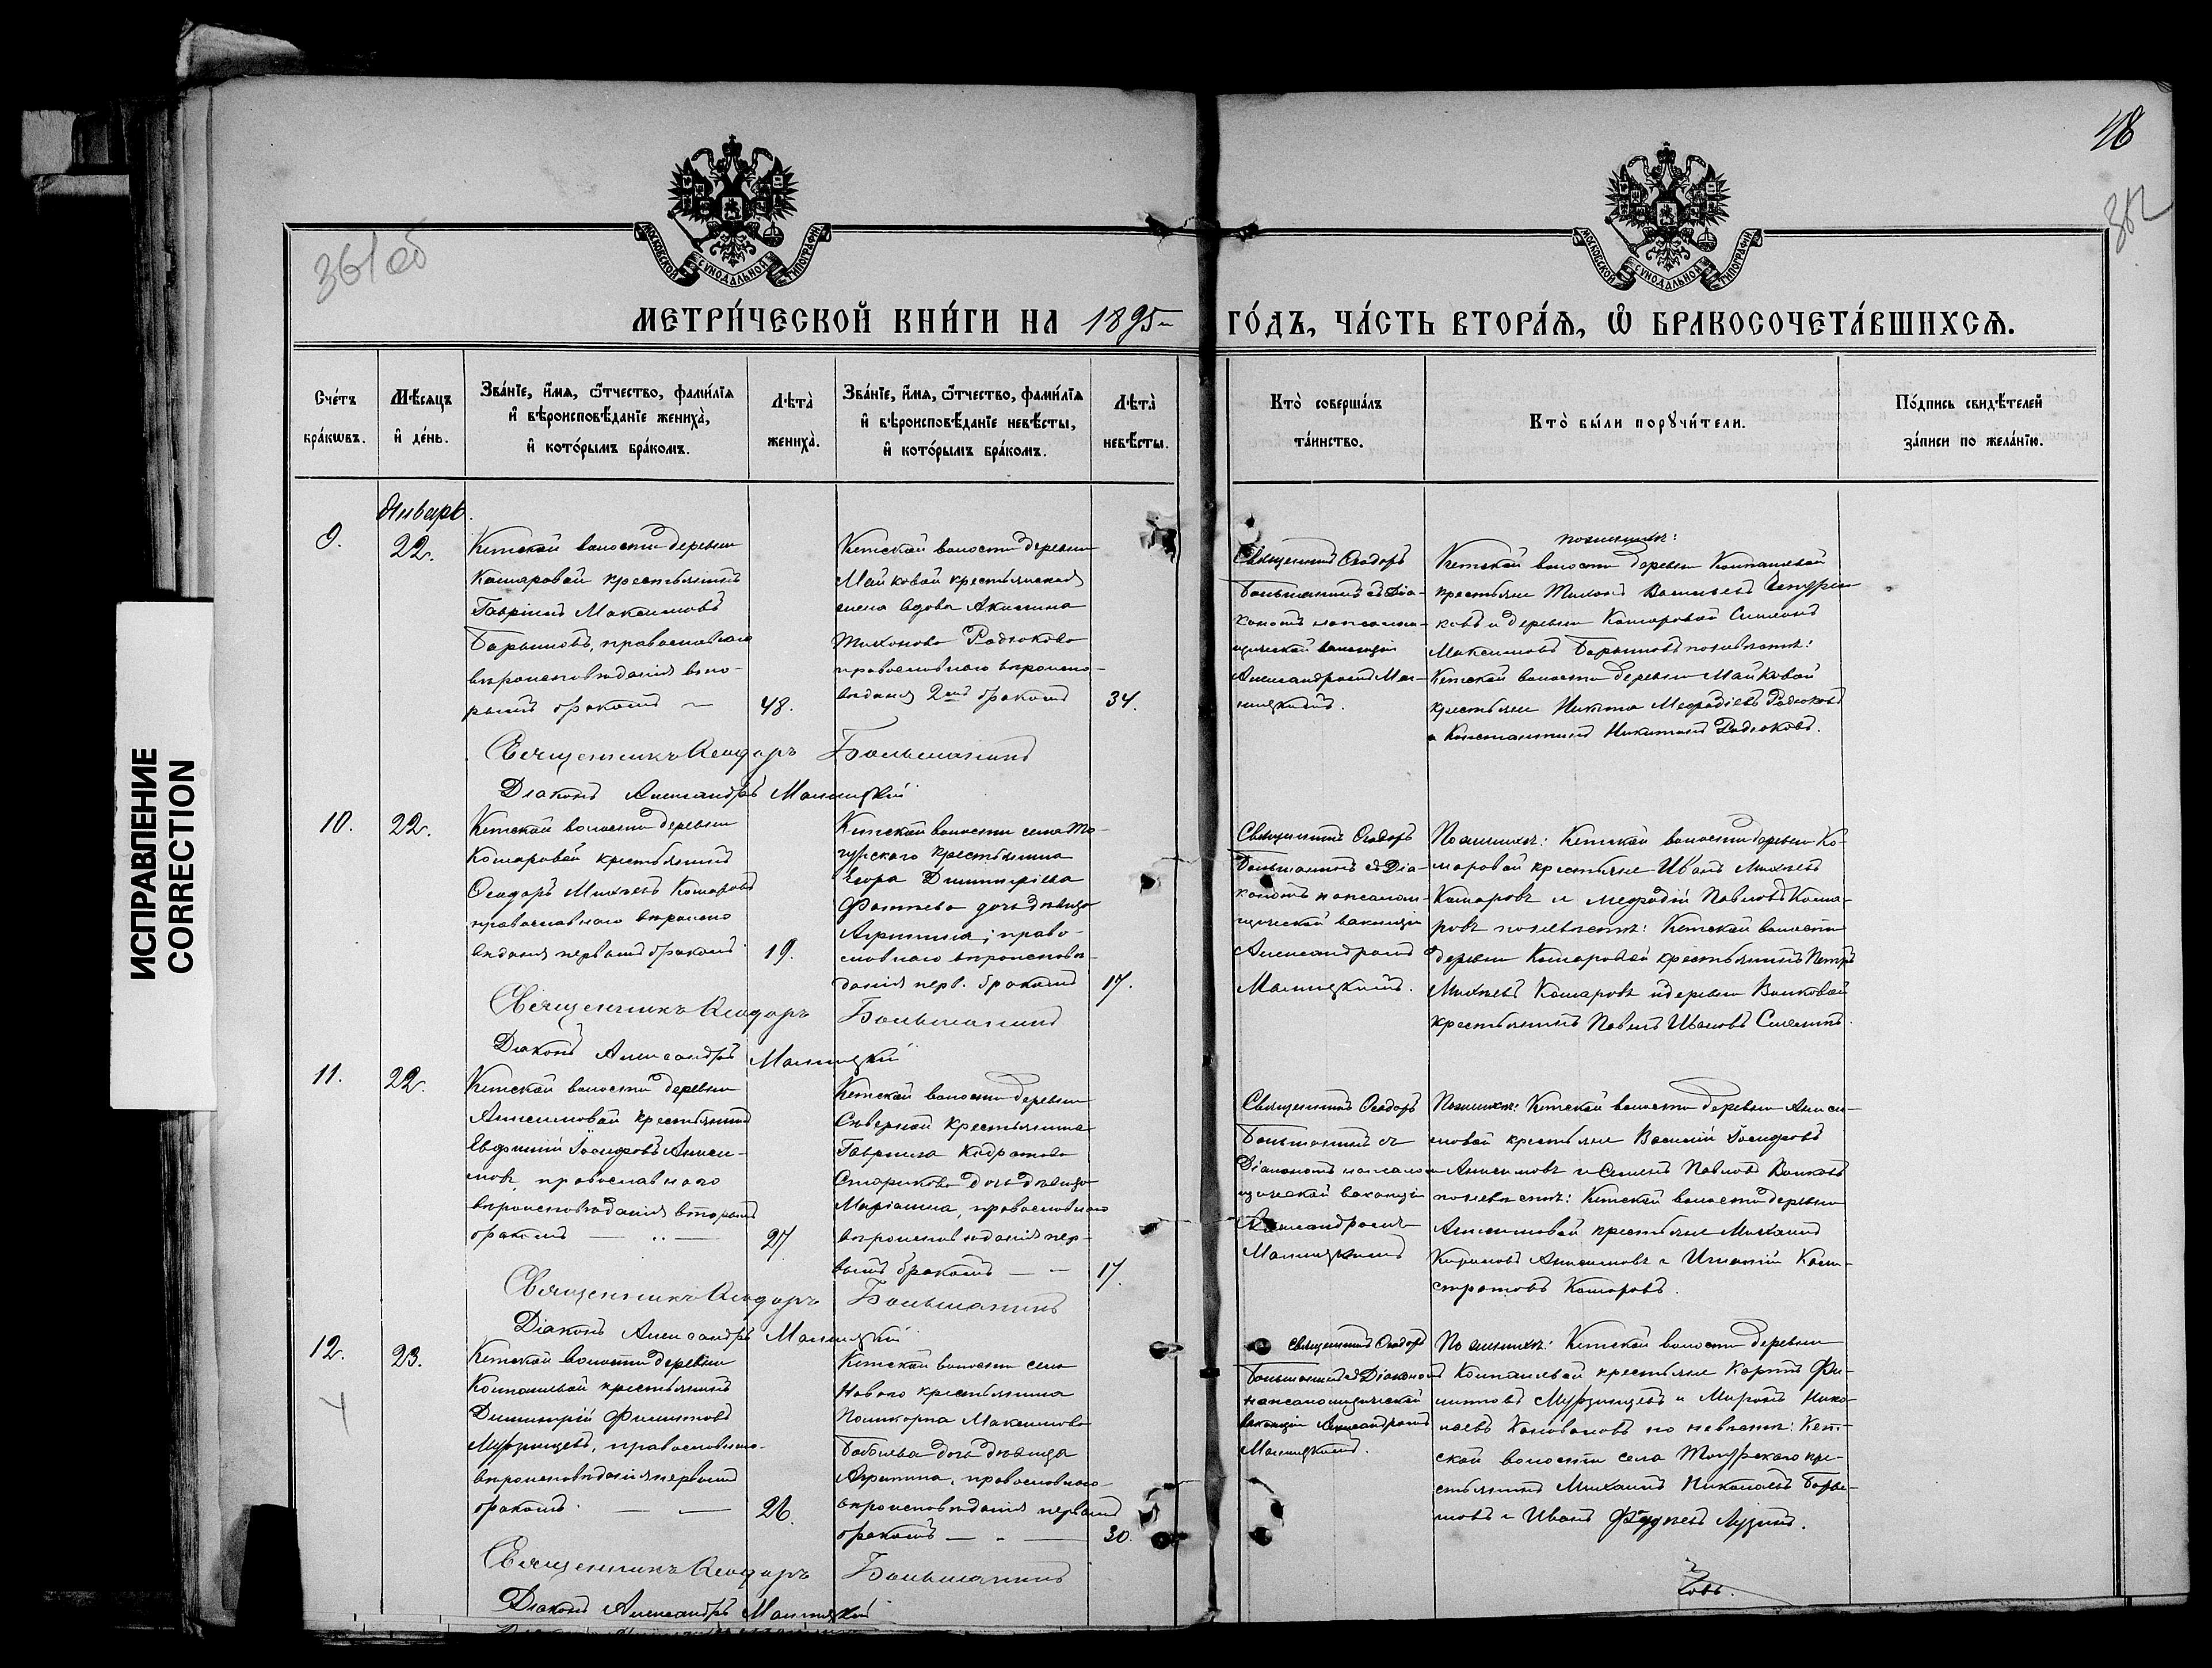 48
362
361об
МОСКОВСКОЙ СѴНОДАЛЬНОЙ ТИПОГРАФІИ
МОСКОВСКОЙ СѴНОДАЛЬНОЙ ТИПОГРАФІИ
МЕТРИ́ЧЕСКОЙ КНИ́ГИ НА 1895 ГО́ДЪ, ЧА́СТЬ ВТОРА́Ѧ, Ѽ БРАКОСОЧЕТА́ВШИХСѦ.
Сче́тъ бра́кѡвъ.
Мѣ́сѧцъ и҆ де́нь.
Зва́нїе, и҆́мѧ, ѻ҆́тчество, фами́лїѧ и҆ вѣроисповѣ́данїе жениха̀, и҆ кото́рымъ бра́комъ.
Лѣта̀ жениха̀.
Зва́нїе, и҆́мѧ, ѻ҆́тчество, фами́лїѧ и҆ вѣроисповѣ́данїе невѣ́сты, и҆ кото́рымъ бра́комъ.
Лѣта̀ невѣ́сты.
Кто̀ соверша́лъ та́инство.
Кто̀ бы́ли порꙋчи́тели.
По́дпись свидѣ́телей за́писи по жела́нїю.
ИСПРАВЛЕНИЕ
CORRECTION
Январь.
9.
22.
Кетской волости деревни
Комаровой крестьянинъ
Гавріилъ Максимовъ
Барышовъ, православнаго
вѣроисповѣданія вто-
рымъ бракомъ
48.
Кетской волости деревни
Майковой крестьянская
жена вдова Акилина
Тихонова Родюкова
православнаго вѣроиспо-
вѣданія 2мъ бракомъ
34.
Священникъ Ѳеодоръ
Большанинъ съ Діа-
кономъ на псалом-
щической вакансіи
Александромъ Мали-
ницкимъ.
по женихѣ:
Кетской волости деревни Колпашевой
крестьяне Тихонъ Васильевъ
ковъ и деревни Комаровой Симеонъ
Максимовъ Барышовъ по невѣстѣ:
Кетской волости деревни Майковой
крестьяне Никита Меѳодіевъ Родюковъ
и Константинъ Никитинъ Родюковъ.
Священникъ Ѳеодоръ Большанинъ
Діаконъ Александръ
10.
22.
Кетской волости деревни
Комаровой крестьянинъ
Ѳеодоръ Михѣевъ Комаровъ
православнаго вѣроиспо
вѣданія первымъ бракомъ
19.
Кетской волости села То-
гурскаго крестьянина
Егора Димитріева
Фатѣева дочь дѣвица
Агриппина, право-
славнаго вѣроисповѣ-
данія перв. бракомъ
17.
Священникъ Ѳеодоръ
Большанинъ съ Діа-
кономъ на псалом-
щической вакансіи
Александромъ
По женихѣ: Кетской волости деревни Ко-
маровой крестьяне Иванъ Михѣевъ
Комаровъ и Меѳодій Павловъ Кома-
ровъ по невѣстѣ: Кетской волости
деревни Комаровой крестьянинъ Петръ
Михѣевъ Комаровъ и деревни Волковой
крестьянинъ Павелъ Ивановъ
Священникъ Ѳеодоръ Большанинъ
Діаконъ Александръ
11.
22.
Кетской волости деревни
Анисимовой крестьянинъ
Евѳимій Іосифовъ Аниси-
мовъ, православнаго
вѣроисповѣданія вторымъ
бракомъ
27
Кетской волости деревни
Сѣверной крестьянина
Гавріила Кодратова
Старикова дочь дѣвица
Маріанна, православнаго
вѣроисповѣданія пер-
вымъ бракомъ
17.
Священникъ Ѳеодоръ
Большанинъ съ
Діакономъ на псалом-
щической вакансіи
Александромъ
По женихѣ: Кетской волости деревни Аниси-
мовой крестьяне Василій Іосифовъ
Анисимовъ и Семенъ Павловъ Волковъ
по невѣстѣ: Кетской волости деревни
Анисимовой крестьяне Михаилъ
Кириловъ Анисимовъ и Игнатій Кали-
стратовъ Комаровъ.
Священникъ Ѳеодоръ Большанинъ
Діаконъ Александръ
12.
23.
Кетской волости деревни
Колпашевой крестьянинъ
Димитрій Филиповъ
Мурзинцевъ, православнаго
вѣроисповѣданія первымъ
бракомъ.
26.
Кетской волости села
Новаго крестьянина
Поликарпа Максимова
дочь дѣвица
Агриппина, православнаго
вѣроисповѣданія первымъ
бракомъ
30.
Священникъ Ѳеодоръ
Большанинъ съ Діакономъ
на псаломщической
вакансіи Александромъ
По женихѣ: Кетской волости деревни
Колпашевой крестьяне Карпъ Фи-
липовъ Мурзинцевъ и Миронъ Нико-
лаевъ по невѣстѣ: Кет-
ской волости села Тогурскаго кре-
стьянинъ Михаилъ Николаевъ Бары-
шовъ и Иванъ Лузинъ.
Священникъ Ѳеодоръ Большанинъ
Діаконъ Александръ